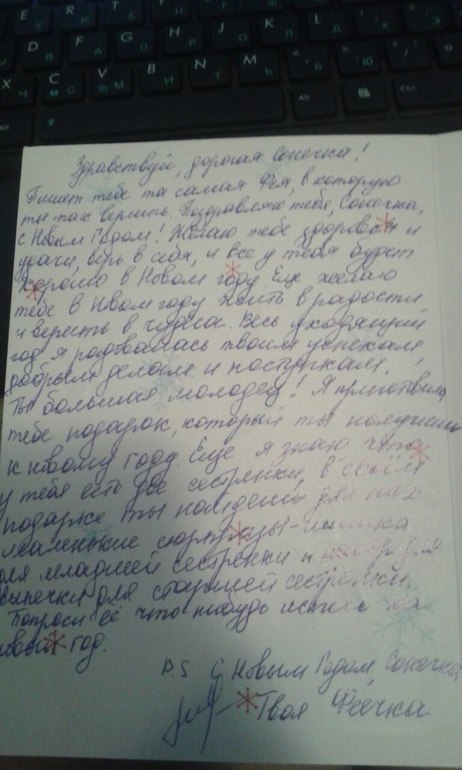 Здравствуй, дорогая Сонечка!
Пишет тебе та самая Фея, в которую
ты так веришь. Поздравляю тебя, Сонечка,
с Новым Годом! Желаю тебе здоровья и
удачи, верь в себя, и все у тебя будет
хорошо в Новом году. Еще желаю
тебе в Новом году жить в радости
и верить в чудеса. Весь уходящий
год я радовалась твоим успехам
добрым делам и поступкам.
Ты большая молодец! Я приготовила
тебе подарок, который ты получишь
к новому году. Еще я знаю что
у тебя есть две сестренки, в своём
подарке ты найдешь для них
маленькие сюрпризы -
для младшей сестренки и для
выпечки для старшей сестренки.
Попроси её что нибудь испечь на
новый год.
P.S С Новым Годом, Сонечка
Твоя Феечка